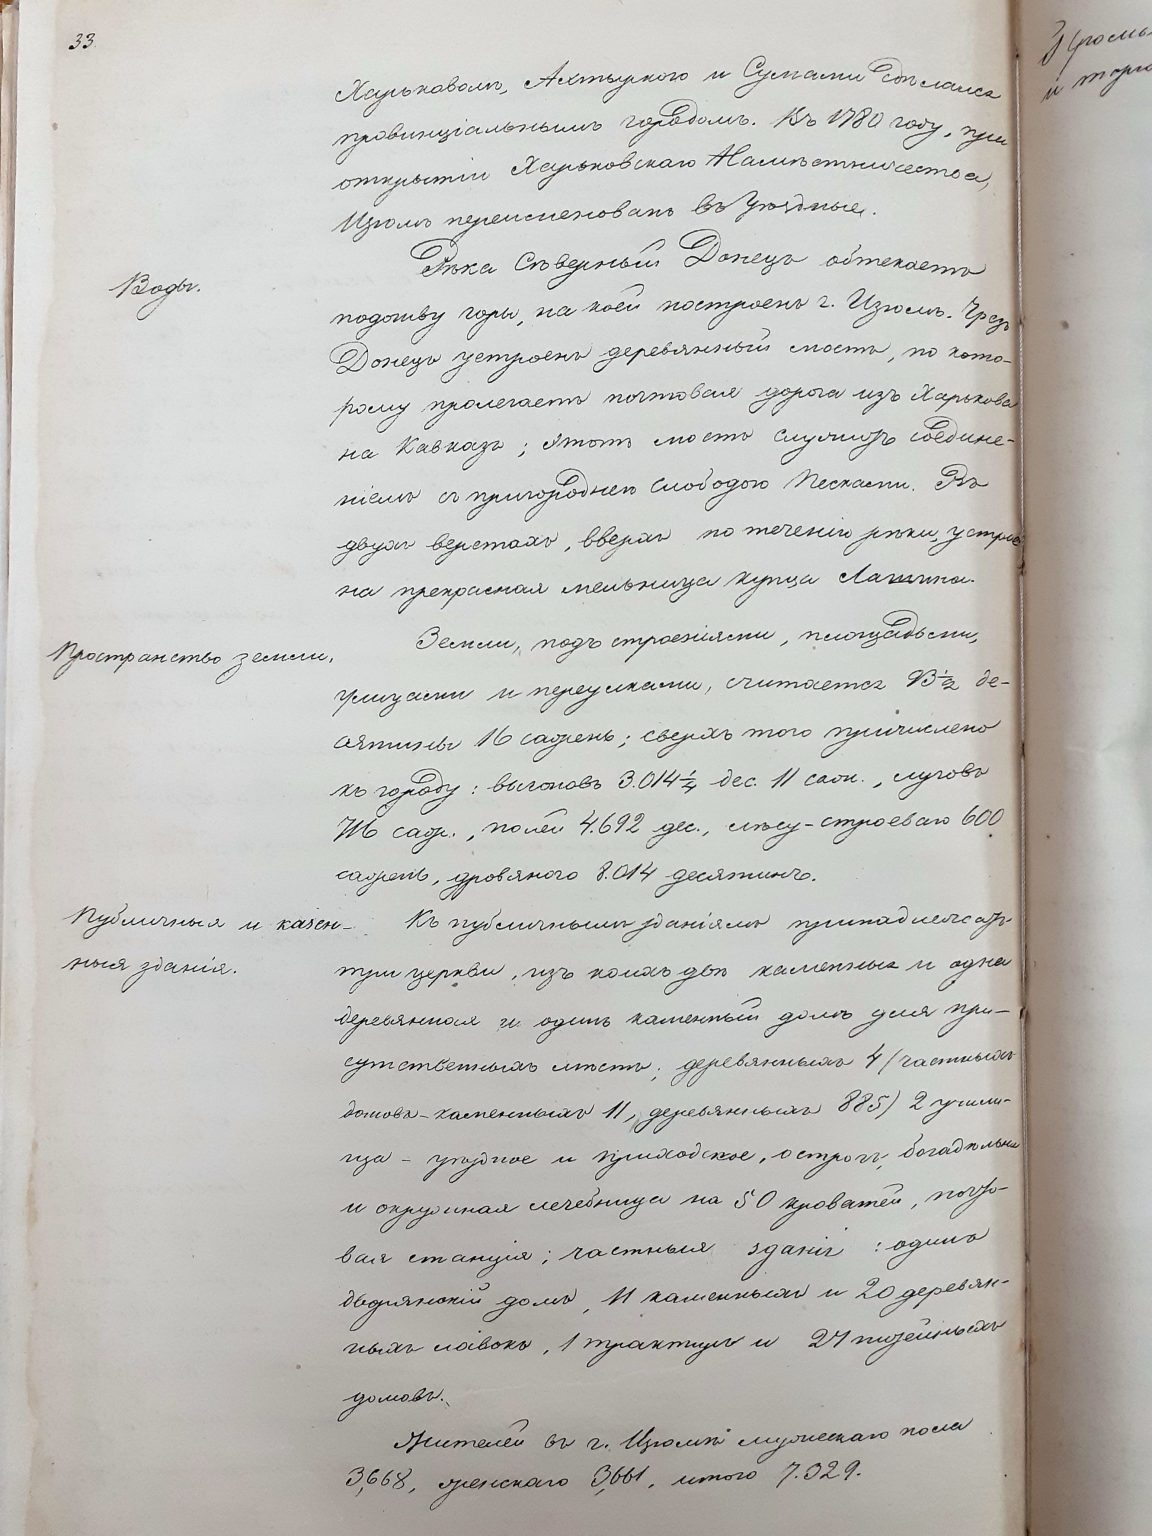 33.
Харьковомъ, Ахтыркою и Сумами сдѣлался
провинціальнымъ городомъ. Въ 1780 году, при
открытіи Харьковскаго Намѣстничества,
Изюмъ переименованъ въ Уѣздные.
Воды.
Рѣка Сѣверный Донецъ обтекаетъ
подошву горы, на коей построенъ г. Изюмъ. Чрезъ
Донецъ устроенъ деревянный мостъ, по кото-
рому пролегаетъ почтовая дорога изъ Харькова
на Кавказъ; этотъ мостъ служитъ соедине-
ніемъ съ пригородней слободою Песками. Въ
двухъ верстахъ, вверхъ по теченію рѣки, устрое
на прекрасная мельница купца
Пространство земли.
Земли, подъ строеніями, площадьми,
улицами и переулками, считается де-
сятины 16 сажень; сверхъ того причислено
къ городу: выгоновъ 3.014 1/4 дес. 11 саж., луговъ
саж., полей 4.692 дес., лѣсу-строеваго 600
сажень, дровяного 8.014 десятинъ.
Публичныя и казен-
ныя зданія.
Къ публичнымъ зданіямъ принадлежатъ
три церкви, изъ коихъ двѣ каменныя и одна
деревянная и одинъ каменный домъ для при-
сутственныхъ мѣстъ; деревянныхъ 4 (частныхъ
домовъ-каменныхъ 11, деревянныхъ 885) 2 учили-
ща - уѣздное и приходское, острогъ, богадѣльня
и окружная лечебница на 50 кроватей, почто-
вая станція; частныя зданія: одинъ
дворянскій домъ, 11 каменныхъ и 20 деревян-
ныхъ лавокъ, 1 трактиръ и 27 питейныхъ
домовъ.
Жителей въ г. Изюмѣ мужескаго пола
3,668, женскаго 3,661, итого 7.329.